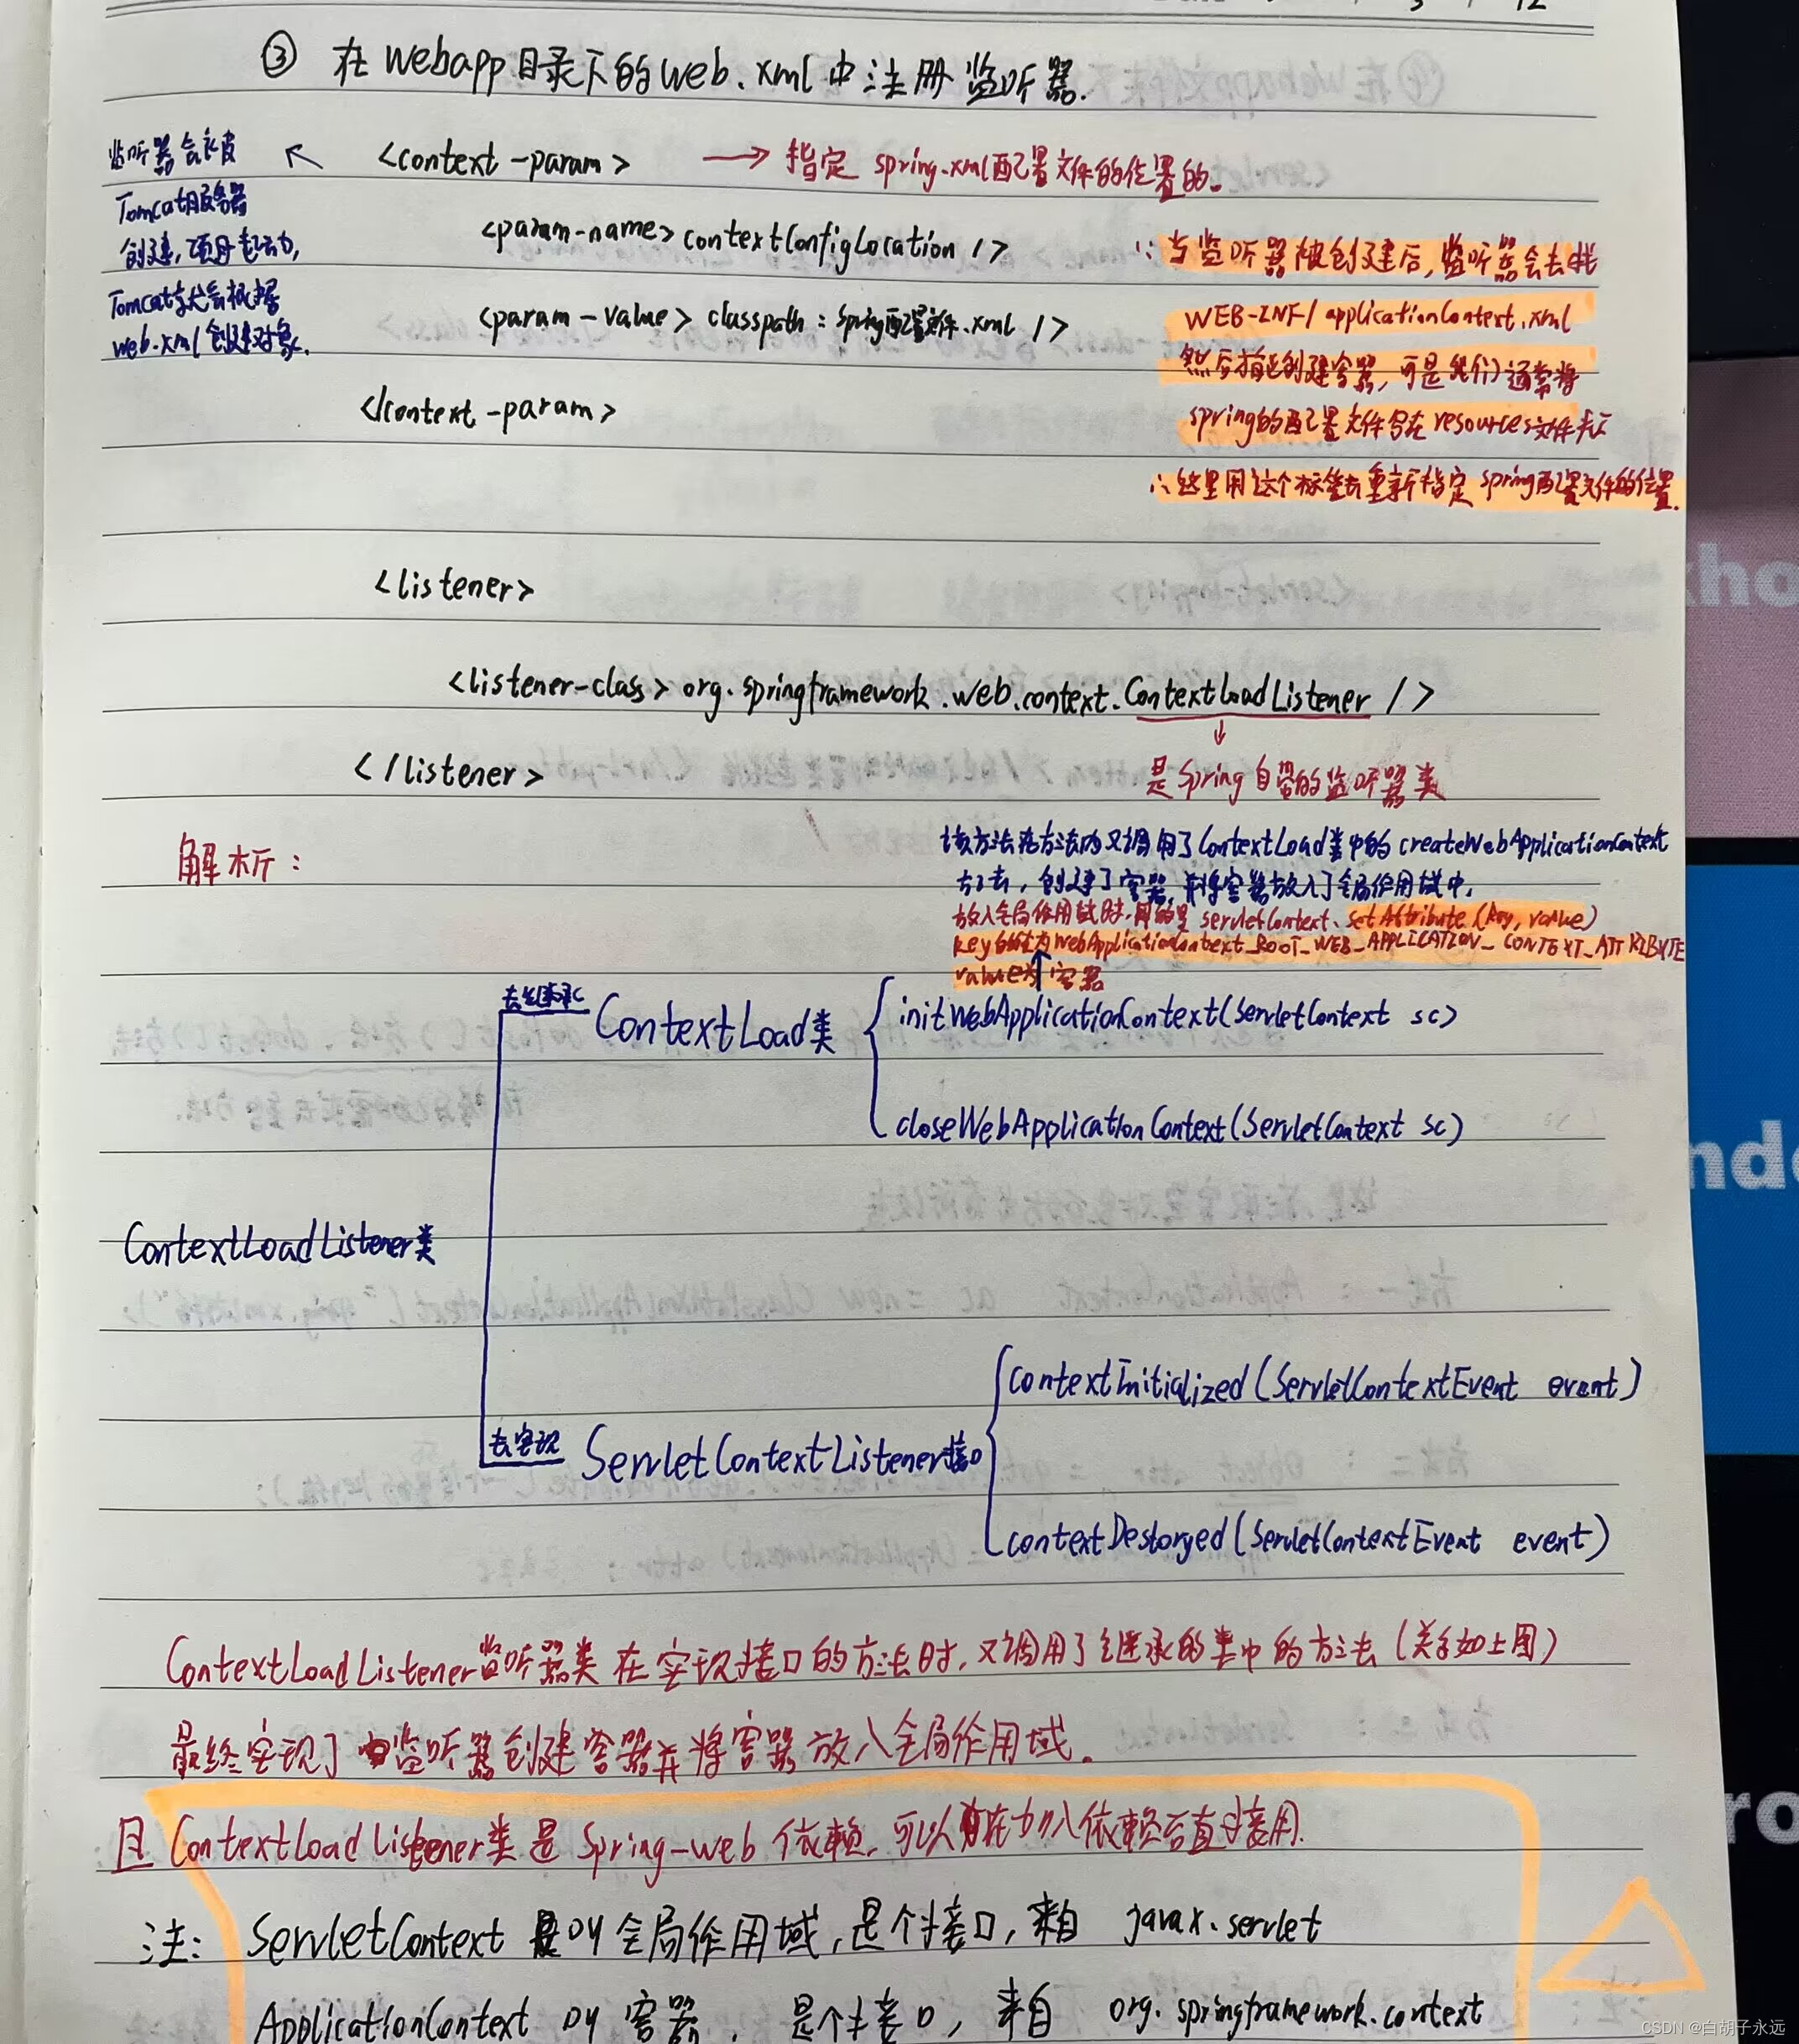 ③ 在webapp目录下的web.xml中注册监听器.
监听器会被
Tomcat服务器
创建,项目启动,
Tomcat就会根据
web.xml创建对象.
<context-param> → 指定 spring.xml配置文件的位置的.
<param-name> contextConfigLocation />
<param-value> classpath:spring配置文件.xml />
</context-param>
∵当监听器被创建后,监听器会去找
WEB-INF/applicationContext.xml
然后创建容器,可是我们通常将
spring的配置文件写在resources文件夹下
∴这里用这个标签去重新指定spring配置文件的位置.
<listener>
<listener-class> org.springframework.web.context.ContextLoadListener />
</listener>
是Spring自带的监听器类
解析:
该方法在方法内又调用了ContextLoad类中的createWebApplicationContext
方法,创建了容器,并将容器放入了全局作用域中,
放入全局作用域时,用的是 servletContext.setAttribute(key,value)
key的值为WebApplicationContext_ROOT_WEB_APPLICATION_CONTEXT_ATTRIBUTE
value为容器
去继承 ContextLoad类
initWebApplicationContext(ServletContext sc)
closeWebApplicationContext(ServletContext sc)
ContextLoadListener类
contextInitialized(ServletContextEvent event)
去实现 ServletContextListener接口
contextDestoryed(ServletContextEvent event)
ContextLoadListener监听器类在实现接口的方法时,又调用了继承的类中的方法(关系如上图)
最终实现了由监听器创建容器并将容器放入全局作用域.
且ContextLoadListener类是Spring-web依赖,可以在加入依赖后直接用.
注: ServletContext 是叫全局作用域,是个接口,来自 javax.servlet
ApplicationContext 叫容器, 是个接口, 来自 org.springframework.context
CSDN @白胡子永远